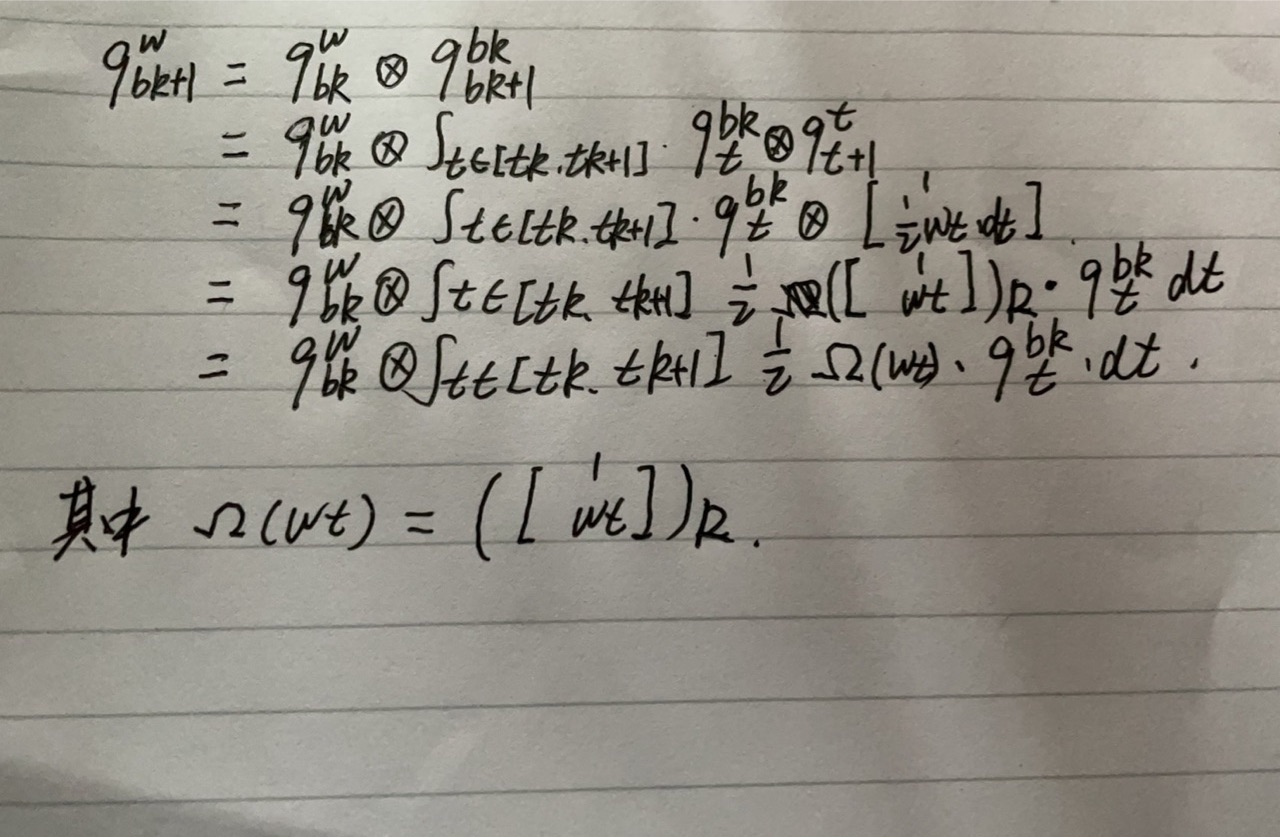 q^w_{bk+1} = q^w_{bk} ⊗ q^{bk}_{bk+1}
= q^w_{bk} ⊗ ∫_{t∈[tk.tk+1]} · q^{bk}_t ⊗ q^t_{t+1}
= q^w_{bk} ⊗ ∫t∈[tk.tk+1] · q^{bk}_t ⊗ [1 ½wt·dt].
= q^w_{bk} ⊗ ∫t∈[tk. tk+1] ½ ([1 wt])_R · q^{bk}_t dt
= q^w_{bk} ⊗ ∫t∈[tk. tk+1] ½ Ω(wt) · q^{bk}_t · dt.
其中 Ω(wt) = ([1 wt])_R.